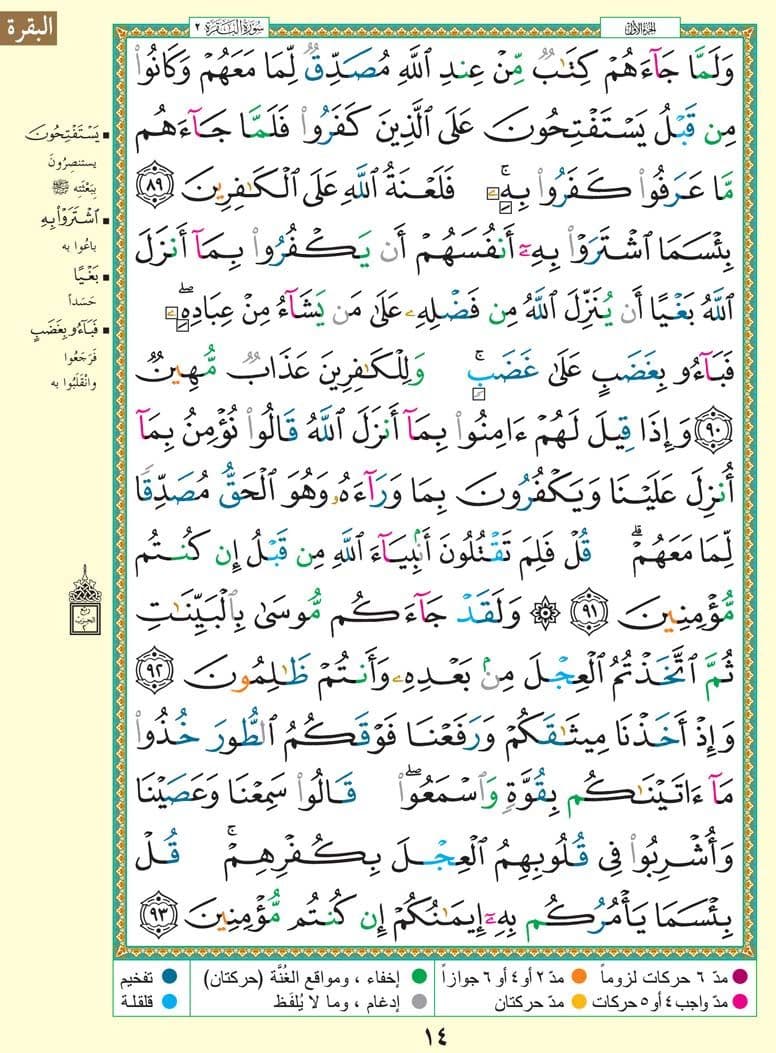 البقرة
الجزء الأول
سورة البقرة ٢
وَلَمَّا جَآءَهُمْ كِتَٰبٌ مِّنْ عِندِ ٱللَّهِ مُصَدِّقٌ لِّمَا مَعَهُمْ وَكَانُوا۟
مِن قَبْلُ يَسْتَفْتِحُونَ عَلَى ٱلَّذِينَ كَفَرُوا۟ فَلَمَّا جَآءَهُم
مَّا عَرَفُوا۟ كَفَرُوا۟ بِهِۦۚ فَلَعْنَةُ ٱللَّهِ عَلَى ٱلْكَٰفِرِينَ ٨٩
بِئْسَمَا ٱشْتَرَوْا۟ بِهِۦٓ أَنفُسَهُمْ أَن يَكْفُرُوا۟ بِمَآ أَنزَلَ
ٱللَّهُ بَغْيًا أَن يُنَزِّلَ ٱللَّهُ مِن فَضْلِهِۦ عَلَىٰ مَن يَشَآءُ مِنْ عِبَادِهِۦۖ
فَبَآءُو بِغَضَبٍ عَلَىٰ غَضَبٍۚ وَلِلْكَٰفِرِينَ عَذَابٌ مُّهِينٌ
٩٠ وَإِذَا قِيلَ لَهُمْ ءَامِنُوا۟ بِمَآ أَنزَلَ ٱللَّهُ قَالُوا۟ نُؤْمِنُ بِمَآ
أُنزِلَ عَلَيْنَا وَيَكْفُرُونَ بِمَا وَرَآءَهُۥ وَهُوَ ٱلْحَقُّ مُصَدِّقًا
لِّمَا مَعَهُمْۗ قُلْ فَلِمَ تَقْتُلُونَ أَنۢبِيَآءَ ٱللَّهِ مِن قَبْلُ إِن كُنتُم
مُّؤْمِنِينَ ٩١ ۞ وَلَقَدْ جَآءَكُم مُّوسَىٰ بِٱلْبَيِّنَٰتِ
ثُمَّ ٱتَّخَذْتُمُ ٱلْعِجْلَ مِنۢ بَعْدِهِۦ وَأَنتُمْ ظَٰلِمُونَ ٩٢
وَإِذْ أَخَذْنَا مِيثَٰقَكُمْ وَرَفَعْنَا فَوْقَكُمُ ٱلطُّورَ خُذُوا۟
مَآ ءَاتَيْنَٰكُم بِقُوَّةٍ وَٱسْمَعُوا۟ۖ قَالُوا۟ سَمِعْنَا وَعَصَيْنَا
وَأُشْرِبُوا۟ فِى قُلُوبِهِمُ ٱلْعِجْلَ بِكُفْرِهِمْۚ قُلْ
بِئْسَمَا يَأْمُرُكُم بِهِۦٓ إِيمَٰنُكُمْ إِن كُنتُم مُّؤْمِنِينَ ٩٣
يَسْتَفْتِحُونَ
يستنصرون
ببعثته ﷺ
ٱشْتَرَوْا۟ بِهِ
باعُوا به
بَغْيًا
حَسَداً
فَبَآءُو بِغَضَبٍ
فَرَجَعُوا
وانْقَلَبُوا به
ربع الحزب ٢
مدّ ٦ حركات لزوماً
مدّ ٢ أو ٤ أو ٦ جوازاً
إخفاء ، ومواقع الغُنَّة (حركتان)
تفخيم
مدّ واجب ٤ أو ٥ حركات
مدّ حركتان
إدغام ، وما لا يُلفَظ
قلقلة
١٤